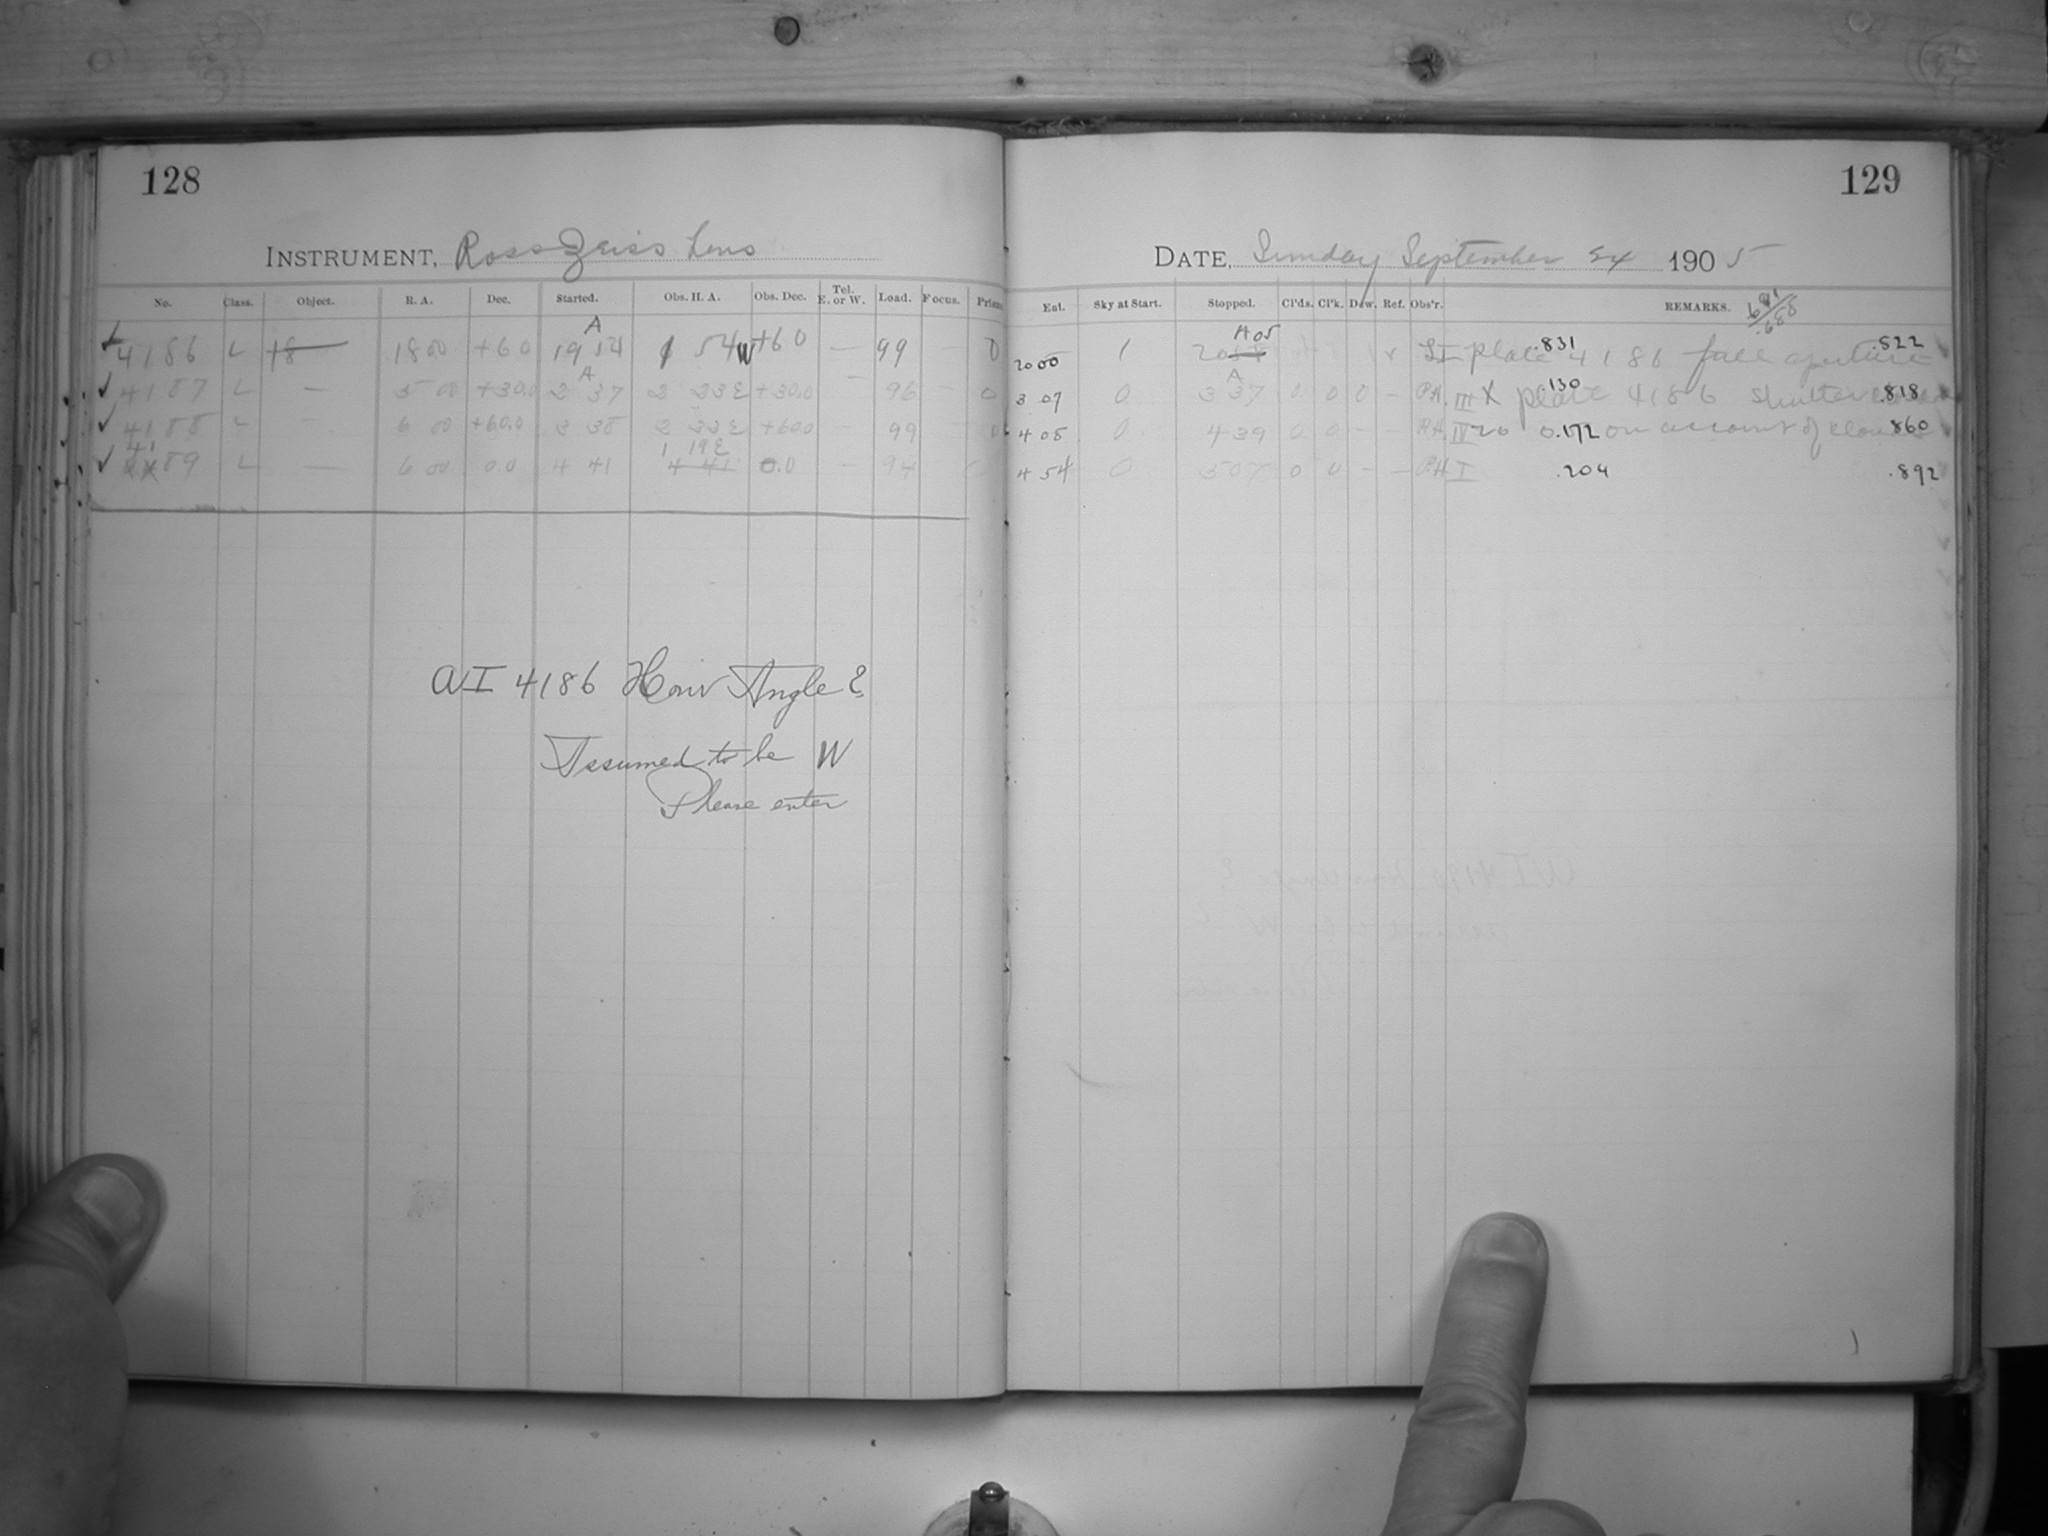 128
INSTRUMENT, Ross Zeiss Lens
No. Class. Object. R. A. Dec. Started. Obs. H. A. Obs. Dec. Tel. E. or W. Load. Focus. Prism
A
4186 L 18 00 +60 19 54 1 54 W +60 — 99 — 0
A
4187 L — 5 00 +30.0 2 37 2 23 E +30.0 — 96 — 0
4188 L — 6 00 +60.0 3 38 2 22 E +60.0 — 99 — 0
41 1 19 E
89 L — 6 00 0.0 4 41 4 41 0.0 — 94
AI 4186 Hour Angle?
Assumed to be W
Please enter
129
DATE, Sunday September 24 1905
Ent. Sky at Start. Stopped. Cl'ds. Cl'k. Dew. Ref. Obs'r. REMARKS.
A 05
20 00 1 20 plate .831 4186 full aperture .522
A
3 07 0 3 37 0 0 0 — III X plate .130 4186 shutter .818
4 08 0 4 39 0 0 — — IV 20 0.172 on account of clouds .860
4 54 0 5 07 0 0 — — I .204 .892